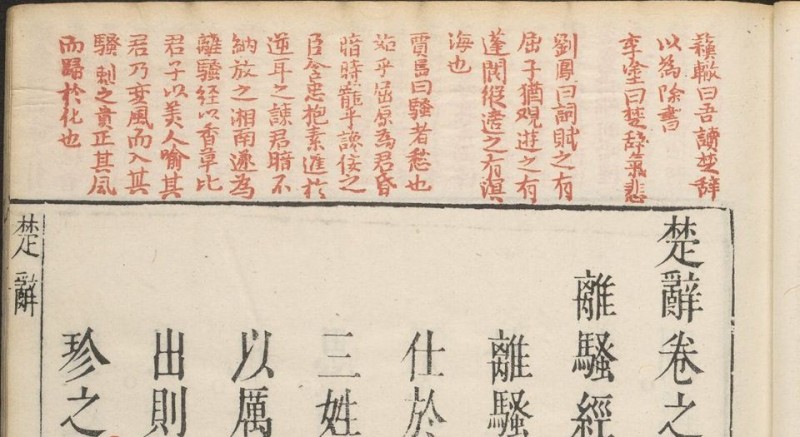 蘓轍曰吾讀楚辭
以為除書
李塗曰楚辭氣悲
劉鳳曰詞賦之有
屈子猶觀遊之有
蓬閬縱適之有溟
海也
賈島曰騷者愁也
始乎屈原為君昏
暗時寵乎讒佞之
臣含忠抱素進於
逆耳之諫君暗不
納放之湘南遂為
離騷経以香草比
君子以美人喻其
君乃变風而入其
騷刺之貴正其風
而歸於化也
楚辭卷之
離騷經
離騷
仕於
三姓
以厲
出則
珍之
楚辭